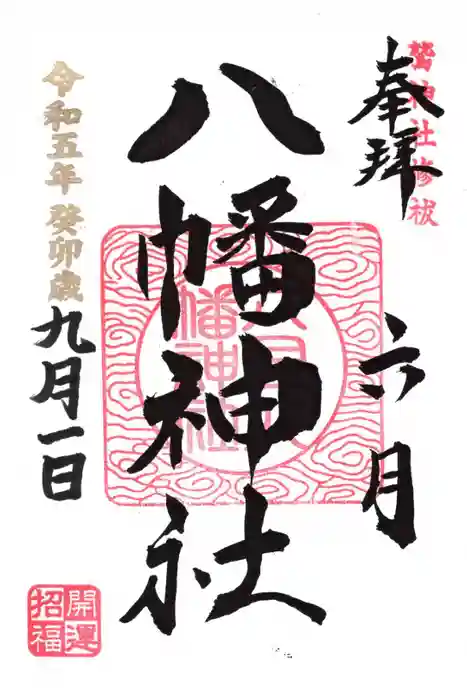 鷲神社修祓
奉拝
六月
八幡神社
六月八幡神社
令和五年癸卯歳九月一日
開運
招福